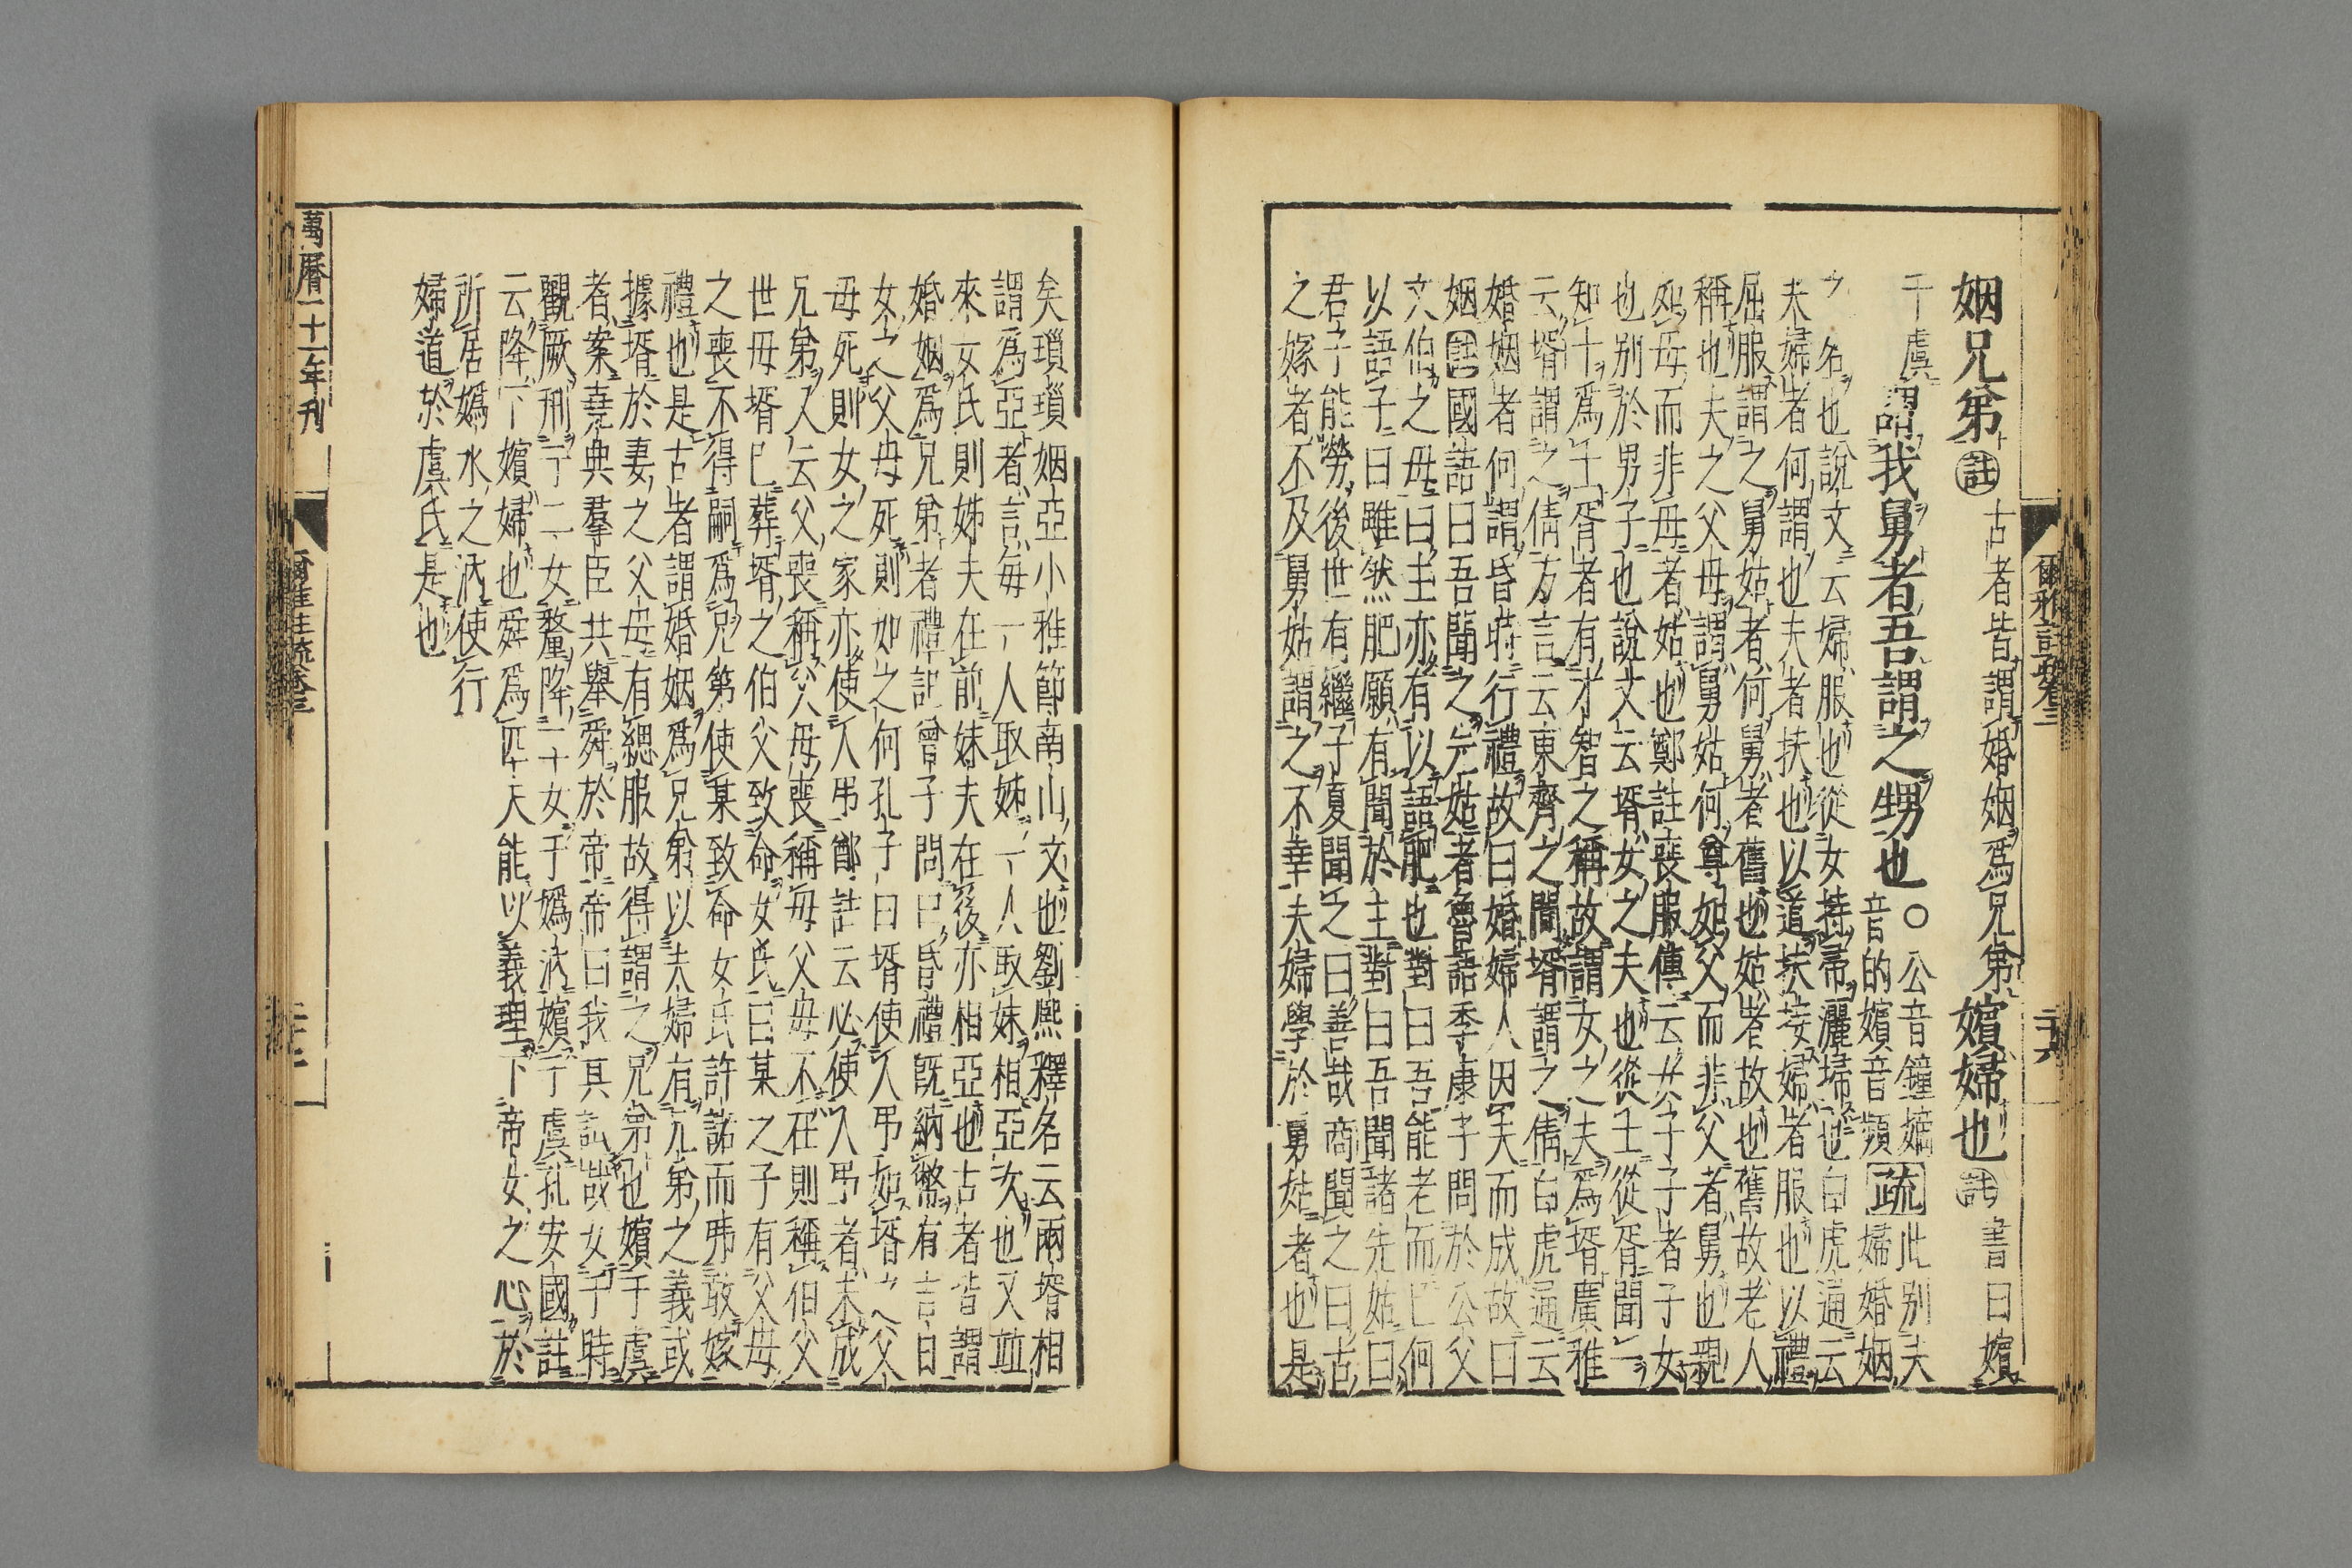 爾雅註疏卷三
二十六
姻兄弟註古者皆謂婚姻爲兄弟嬪婦也註書曰嬪
于虞謂我舅者吾謂之甥也○公音鐘嫡音的嬪音頻疏此別夫婦婚姻
之名也說文云婦服也從女持帚灑埽也白虎通云
夫婦者何謂也夫者扶也以道扶接婦者服也以禮
屈服謂之舅姑者何舅者舊也姑者故也舊故老人
稱也夫之父母謂舅姑何尊如父而非父者舅也親
如母而非母者姑也鄭註喪服傳云女子子者子女
也別於男子也說文云壻女之夫也從士從胥聞一
知十爲士胥者有才智之稱故謂女之夫爲壻廣雅
云壻謂之倩方言云東齊之間壻謂之倩白虎通云
婚姻者何謂昏時行禮故曰婚婦人因夫而成故曰
姻註國語曰吾聞之先姑者魯語季康子問於公父
文伯之母曰主亦有以語肥也對曰吾能老而已何
以語子曰雖然肥願有聞於主對曰吾聞諸先姑曰
君子能勞後世有繼子夏聞之曰善哉商聞之曰古
之嫁者不及舅姑謂之不幸夫婦學於舅姑者也是
矣瑣瑣姻亞小雅節南山文也劉熙釋名云兩壻相
謂爲亞者言每一人取姊一人取妹相亞次也又竝
來女氏則姊夫在前妹夫在後亦相亞也古者皆謂
婚姻爲兄弟者禮記曾子問曰昏禮既納幣有吉日
女之父母死則如之何孔子曰壻使人弔如壻之父
母死則女之家亦使人弔鄭註云必使人弔者未成
兄弟又云父喪稱父母喪稱母父母不在則稱伯父
世母壻已葬壻之伯父致命女氏曰某之子有父母
之喪不得嗣爲兄弟使某致命女氏許諾而弗敢嫁
禮也是古者謂婚姻爲兄弟以夫婦有兄弟之義或
據壻於妻之父母有緦服故得謂之兄弟也嬪于虞
者案堯典羣臣共舉舜於帝帝曰我其試哉女于時
觀厥刑于二女釐降二女于嬀汭嬪于虞孔安國註
云降下嬪婦也舜爲匹夫能以義理下帝女之心於
所居嬀水之汭使行
婦道於虞氏是也
萬曆二十一年刊
爾雅註疏卷三